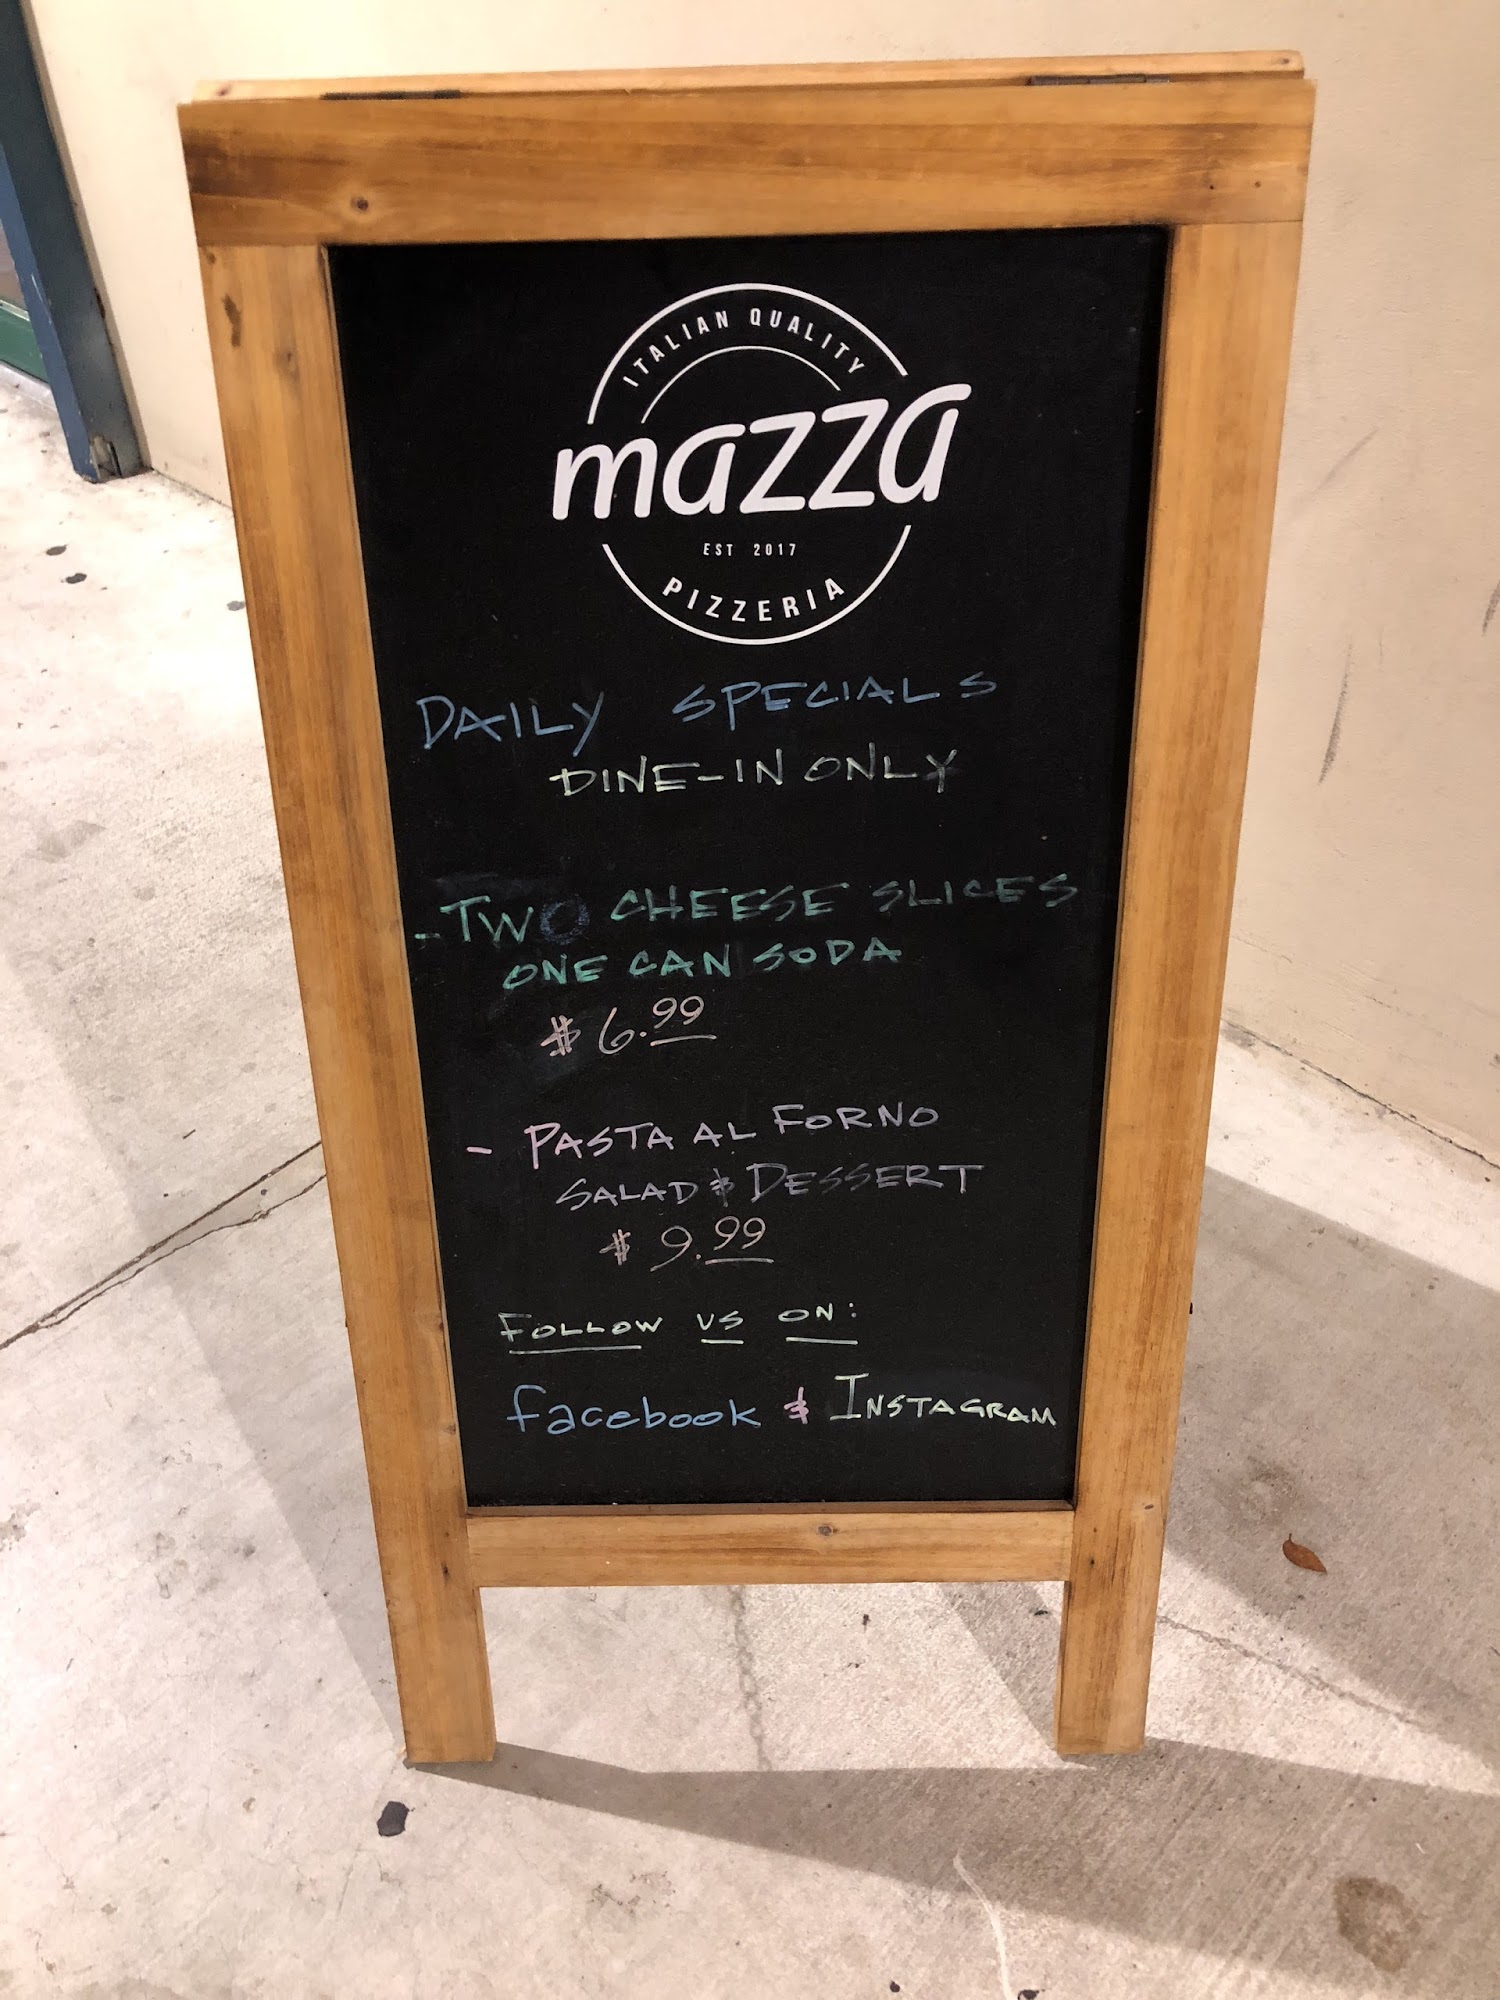 ITALIAN QUALITY
mazza
EST 2017
PIZZERIA
DAILY SPECIALS
DINE-IN ONLY
- TWO CHEESE SLICES
ONE CAN SODA
$6.99
- PASTA AL FORNO
SALAD & DESSERT
$9.99
FOLLOW US ON:
facebook & INSTAGRAM